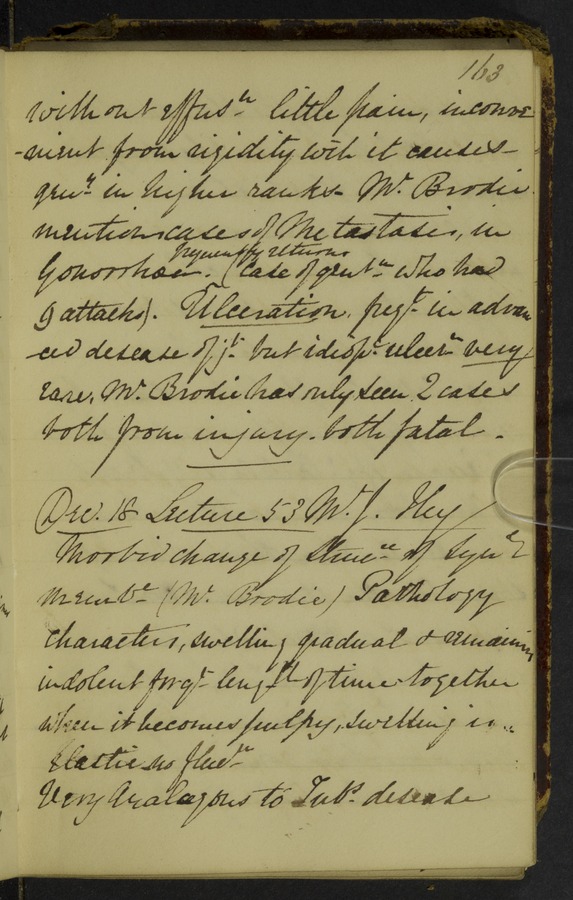 163
without effusn little pain, inconve
-nient from rigidity wch it causes -
genly in higher ranks - Mr. Brodie
mentions cases of Metastasis, in
frequently returns
Gonorrhoea. (Case of gentn who had
9 attacks). Ulceration, freqt in advan
-ced desease of jt but idiop. ulcern very
rare, Mr. Brodie has only seen 2 cases
both from injury. both fatal -
Dec. 18 Lecture 53 Mr. J. Hey
Morbid change of Struc of Syn
Membe (Mr. Brodie) Pathology
Characters, swelling gradual & remaining
indolent for gt length of time together
when it becomes pulpy, swelling is
elastic no fluctn
Very Analagous to Tubs desease